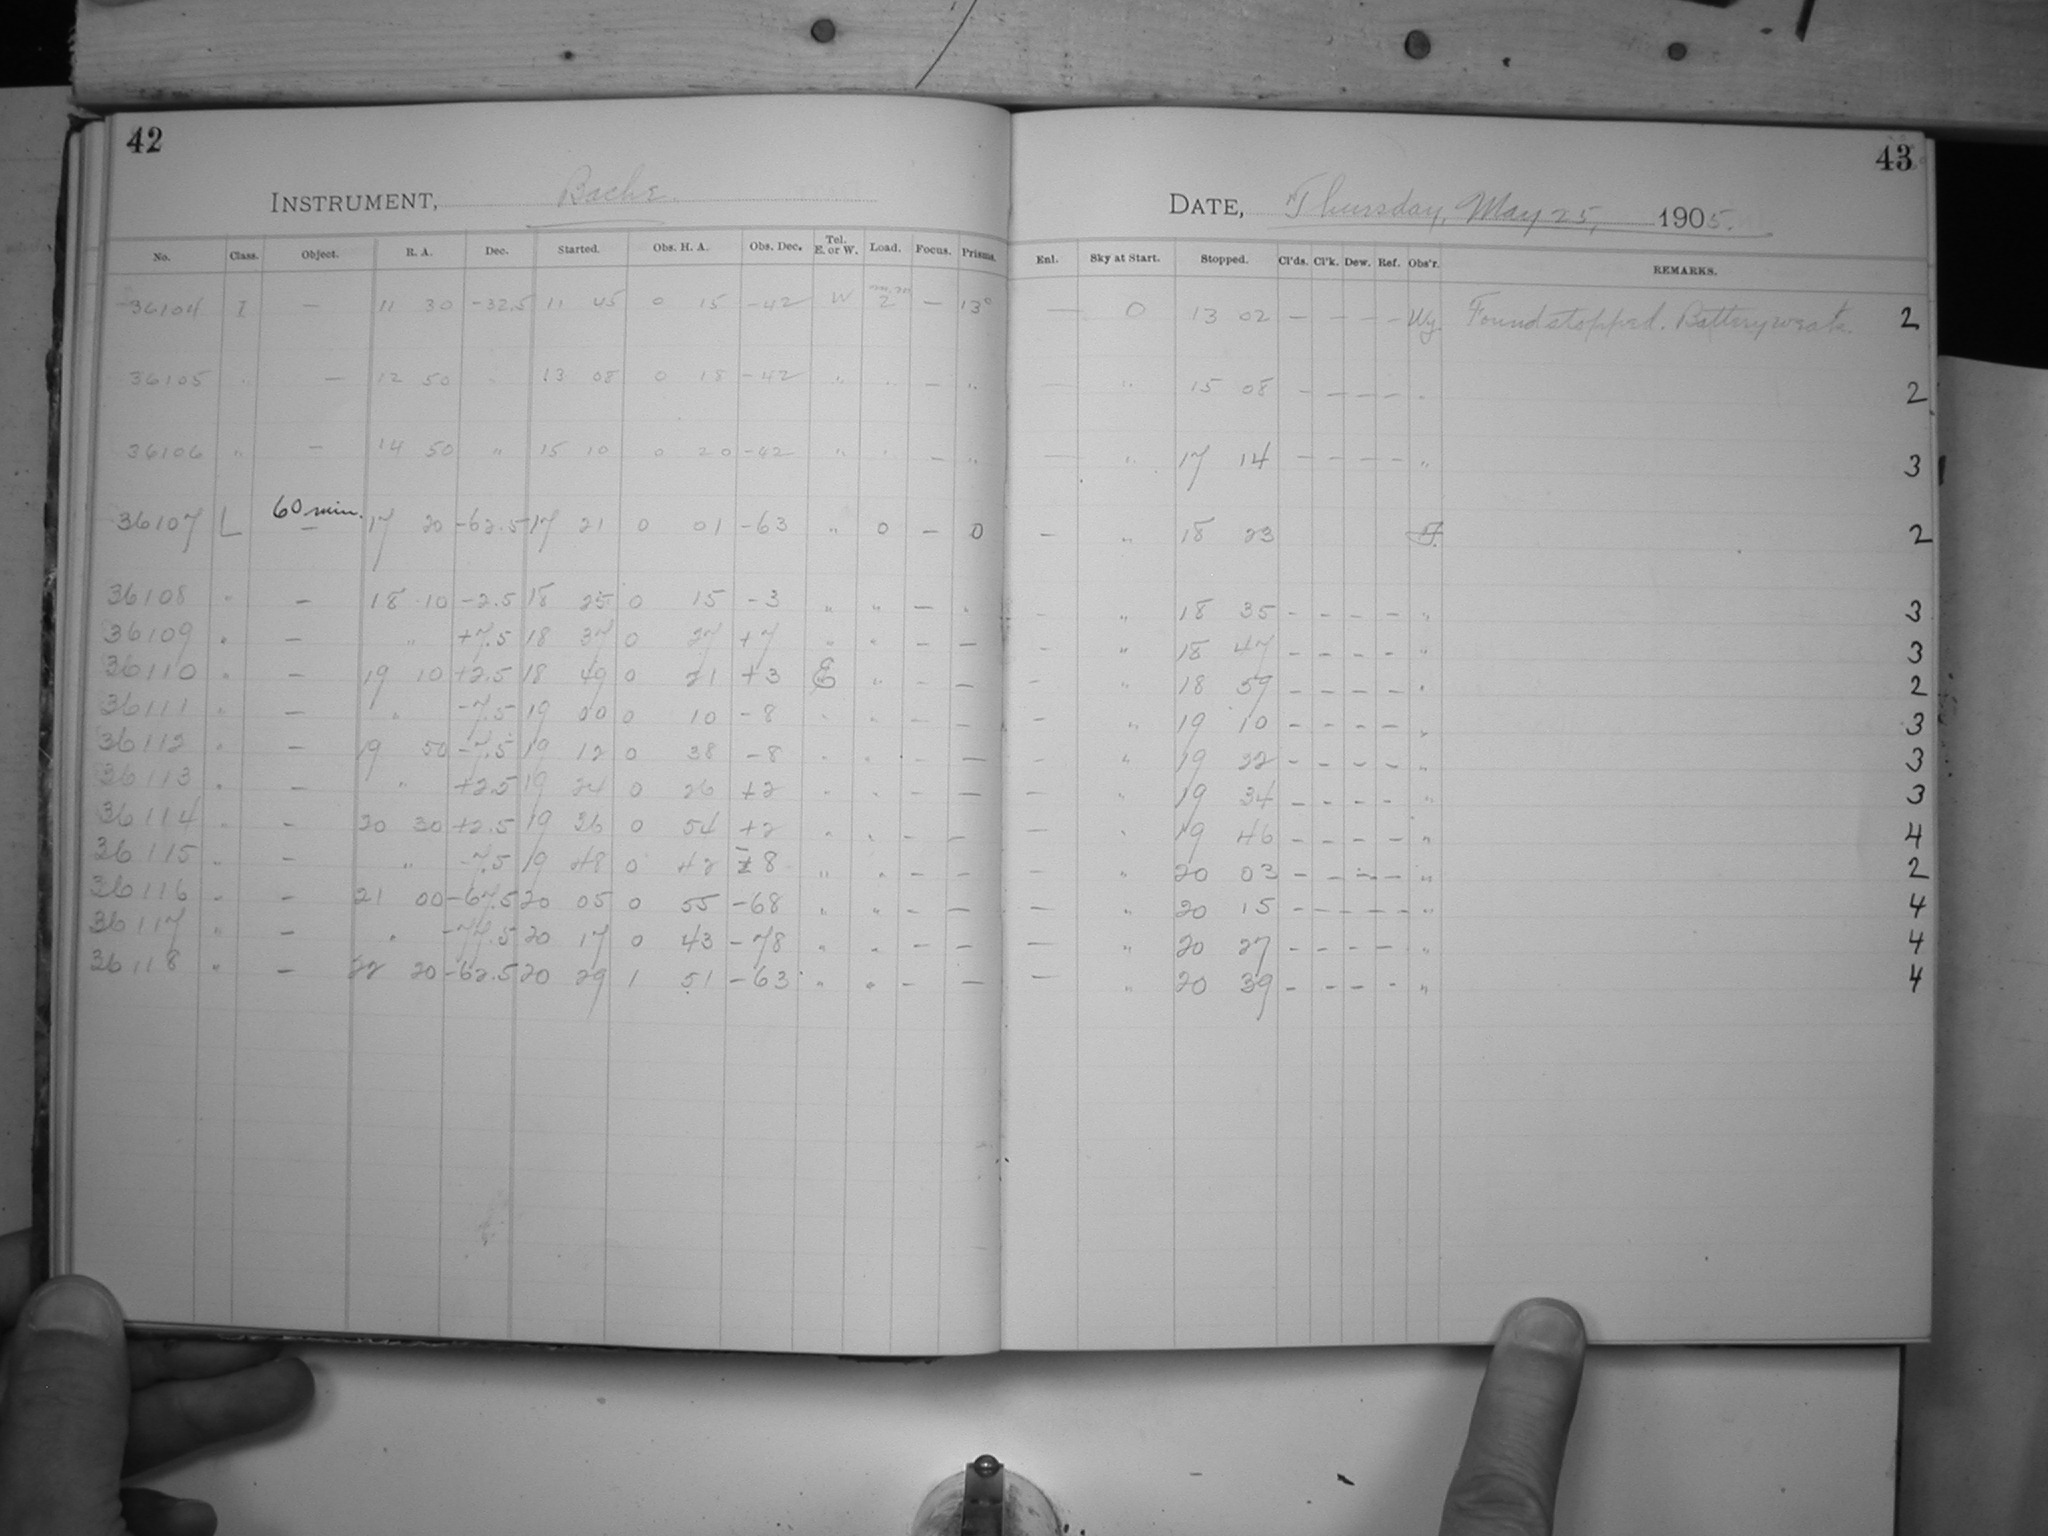 42
INSTRUMENT, Bache.
No. Class. Object. R. A. Dec. Started. Obs. H. A. Obs. Dec. Tel. E. or W. Load. Focus. Prisms.
36104 I — 11 30 -32.5 11 45 0 15 -42 W 2 — 13°
36105 " — 12 50 " 13 08 0 18 -42 " " — "
36106 " — 14 50 " 15 10 0 20 -42 " " — "
36107 L 60 min. — 17 20 -62.5 17 21 0 01 -63 " 0 — 0
36108 " — 18 10 -2.5 18 25 0 15 -3 " " — "
36109 " — " +7.5 18 37 0 27 +7 " " — —
36110 " — 19 10 +2.5 18 49 0 21 +3 E " — —
36111 " — " -7.5 19 00 0 10 -8 " " — —
36112 " — 19 50 -7.5 19 12 0 38 -8 " " — —
36113 " — " +2.5 19 24 0 26 +2 " " — —
36114 " — 20 30 +2.5 19 36 0 54 +2 " " — —
36115 " — " -7.5 19 48 0 42 -8 " " — —
36116 " — 21 00 -67.5 20 05 0 55 -68 " " — —
36117 " — " -77.5 20 17 0 43 -78 " " — —
36118 " — 22 20 -62.5 20 29 1 51 -63 " " — —
43
DATE, Thursday, May 25, 1905.
Enl. Sky at Start. Stopped. Cl'ds. Cl'k. Dew. Ref. Obs'r. REMARKS.
— 0 13 02 — — — — Wy. Found stopped. Battery weak. 2
— " 15 08 — — — — " 2
— " 17 14 — — — — " 3
— " 18 23 2
— " 18 35 — — — — " 3
— " 18 47 — — — — " 3
— " 18 59 — — — — " 2
— " 19 10 — — — — " 3
— " 19 22 — — — — " 3
— " 19 34 — — — — " 3
— " 19 46 — — — — " 4
— " 20 03 — — — — " 2
— " 20 15 — — — — " 4
— " 20 27 — — — — " 4
— " 20 39 — — — — " 4